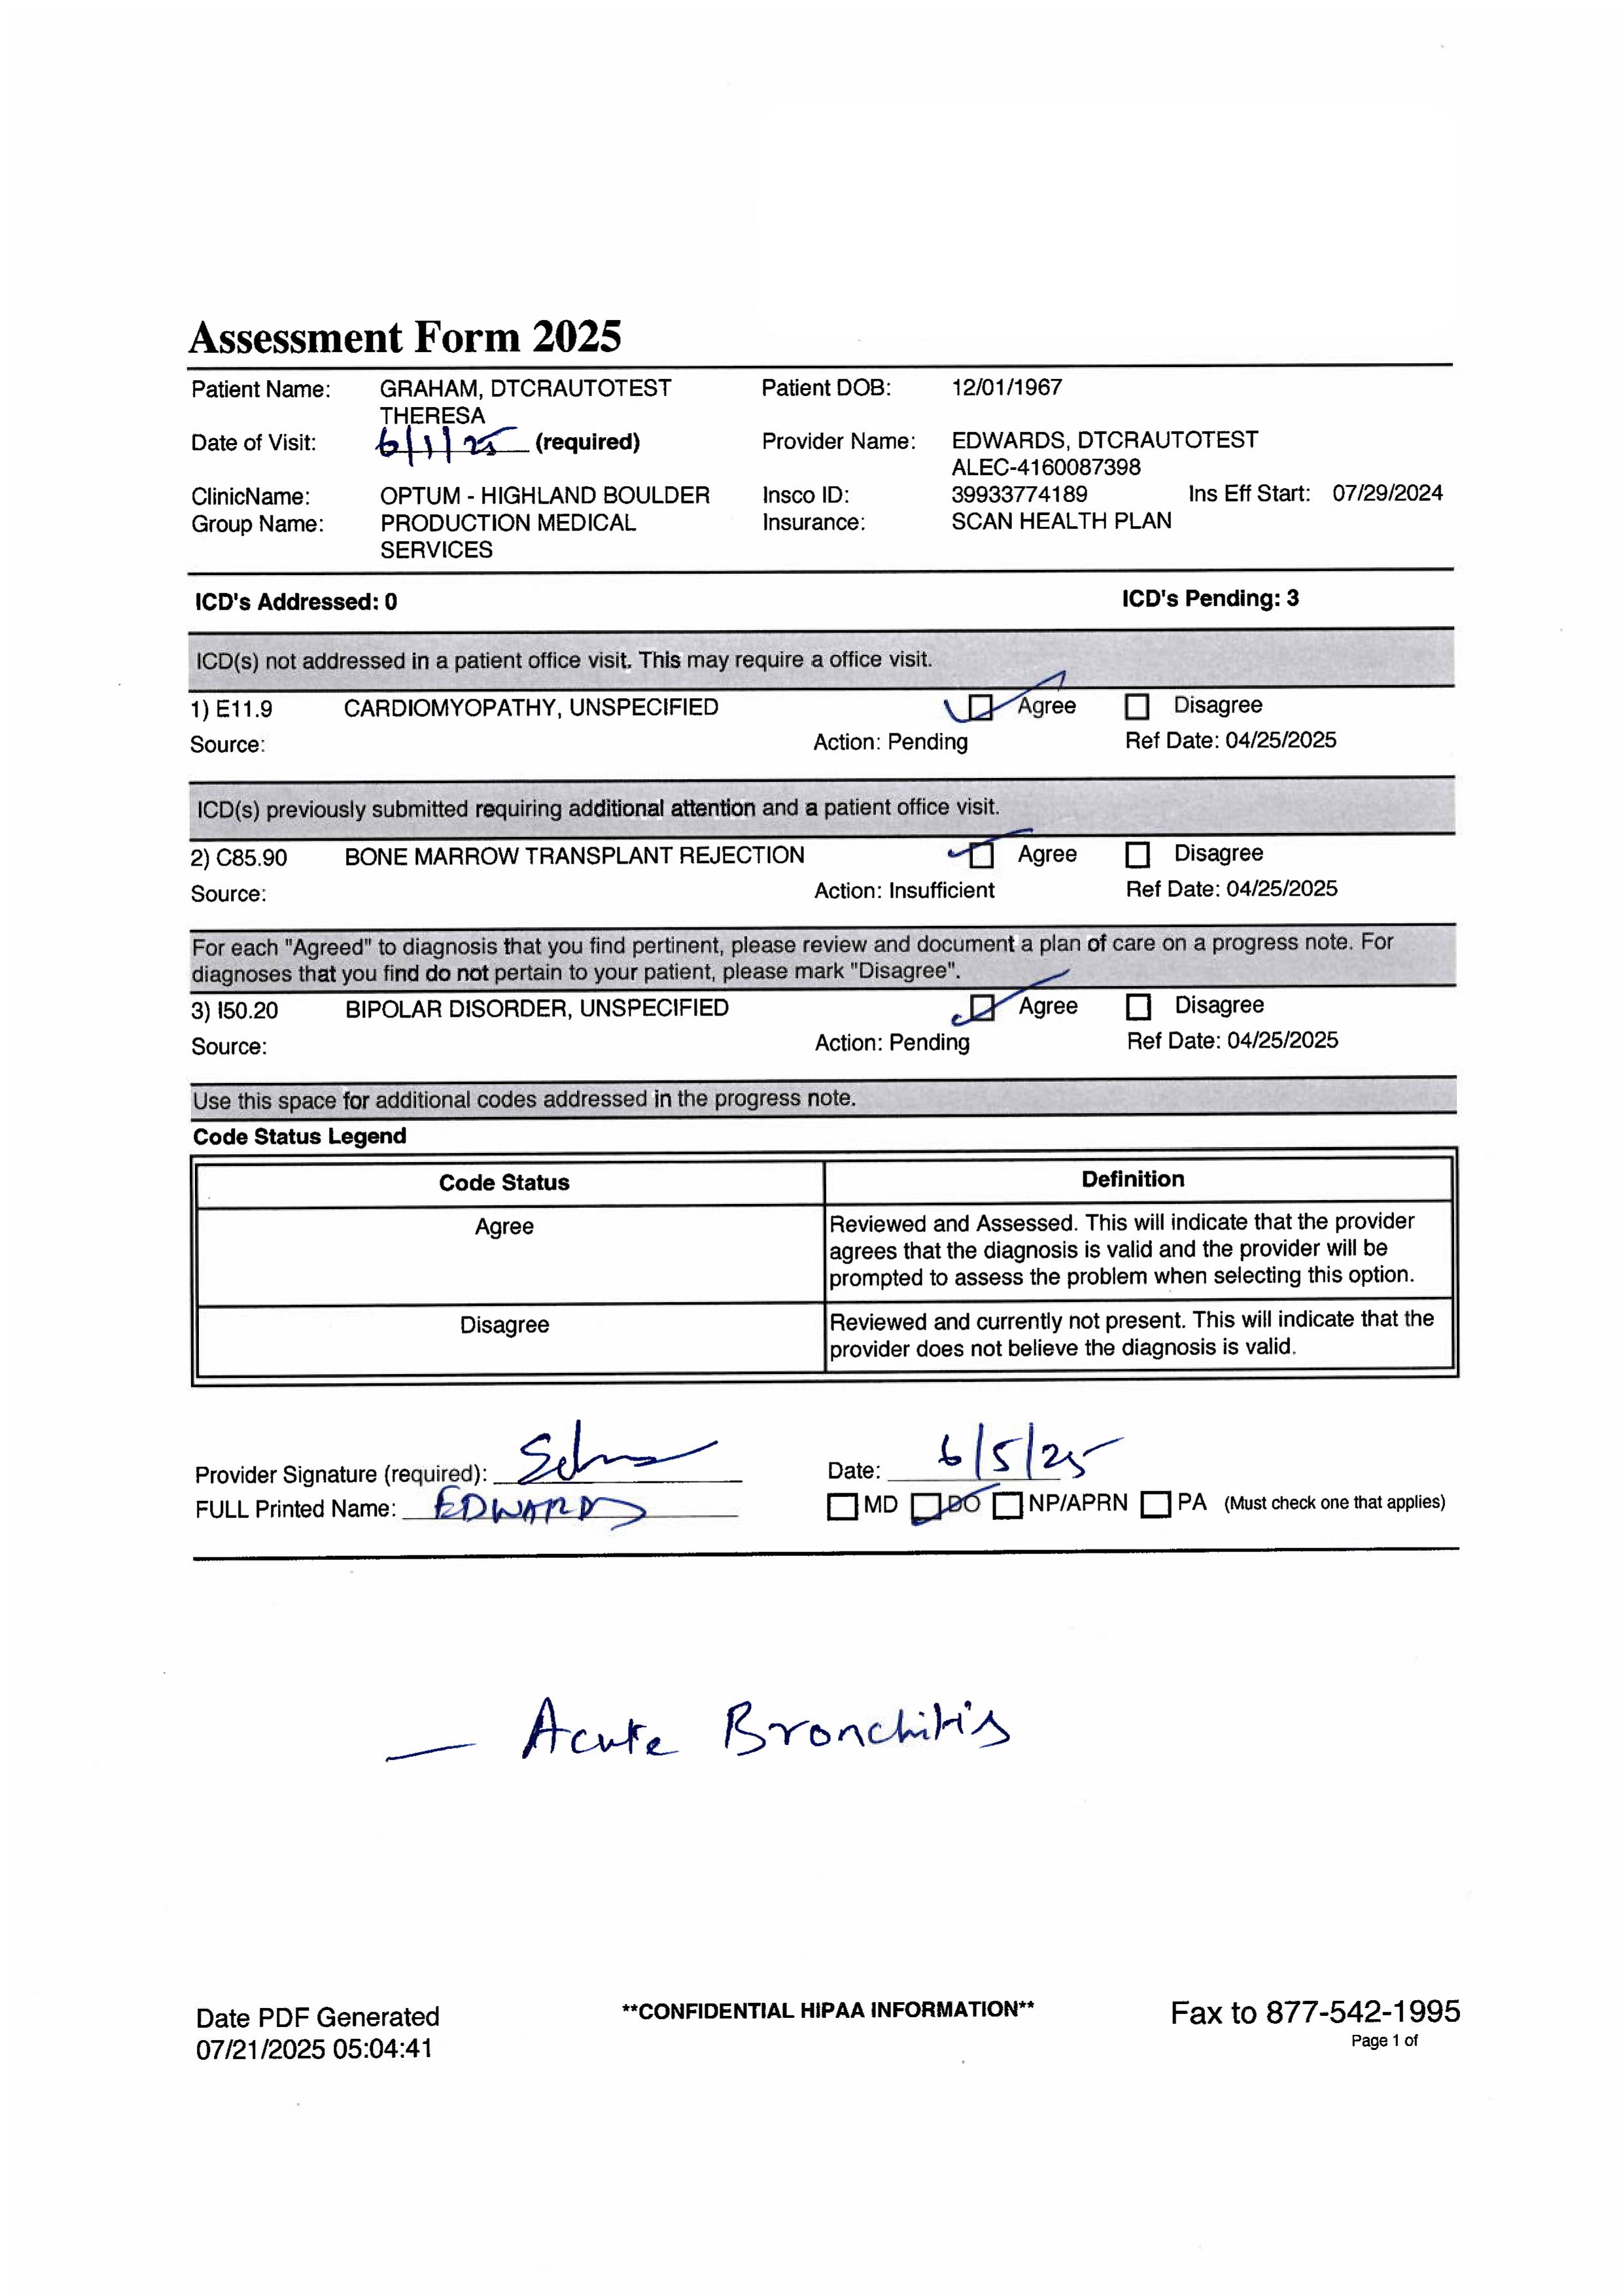 Assessment Form 2025
Patient Name: GRAHAM, DTCRAUTOTEST Patient DOB: 12/01/1967
THERESA
Date of Visit: 6/1/25 (required) Provider Name: EDWARDS, DTCRAUTOTEST
ALEC-4160087398
ClinicName: OPTUM - HIGHLAND BOULDER Insco ID: 39933774189 Ins Eff Start: 07/29/2024
Group Name: PRODUCTION MEDICAL Insurance: SCAN HEALTH PLAN
SERVICES
ICD's Addressed: 0 ICD's Pending: 3
ICD(s) not addressed in a patient office visit. This may require a office visit.
1) E11.9 CARDIOMYOPATHY, UNSPECIFIED Agree Disagree
Source: Action: Pending Ref Date: 04/25/2025
ICD(s) previously submitted requiring additional attention and a patient office visit.
2) C85.90 BONE MARROW TRANSPLANT REJECTION Agree Disagree
Source: Action: Insufficient Ref Date: 04/25/2025
For each "Agreed" to diagnosis that you find pertinent, please review and document a plan of care on a progress note. For
diagnoses that you find do not pertain to your patient, please mark "Disagree".
3) I50.20 BIPOLAR DISORDER, UNSPECIFIED Agree Disagree
Source: Action: Pending Ref Date: 04/25/2025
Use this space for additional codes addressed in the progress note.
Code Status Legend
Code Status Definition
Agree Reviewed and Assessed. This will indicate that the provider
agrees that the diagnosis is valid and the provider will be
prompted to assess the problem when selecting this option.
Disagree Reviewed and currently not present. This will indicate that the
provider does not believe the diagnosis is valid.
Provider Signature (required): Date: 6/5/25
FULL Printed Name: EDWARDS MD DO NP/APRN PA (Must check one that applies)
— Acute Bronchitis
Date PDF Generated **CONFIDENTIAL HIPAA INFORMATION** Fax to 877-542-1995
07/21/2025 05:04:41 Page 1 of